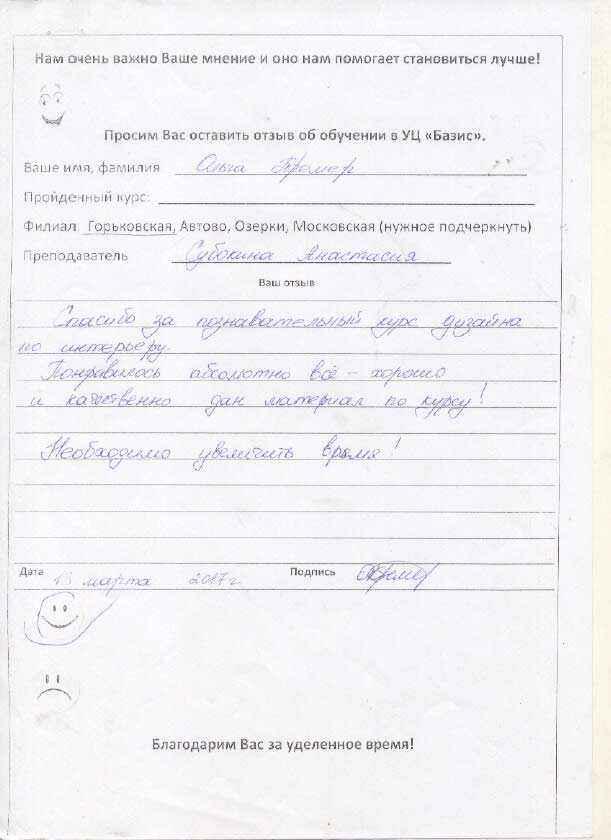 Нам очень важно Ваше мнение и оно нам помогает становиться лучше!
Просим Вас оставить отзыв об обучении в УЦ «Базис».
Ваше имя, фамилия Ольга Кромер
Пройденный курс:
Филиал: Горьковская, Автово, Озерки, Московская (нужное подчеркнуть)
Преподаватель Субокина Анастасия
Ваш отзыв
Спасибо за познавательный курс дизайна
по интерьеру.
Понравилось абсолютно всё – хорошо
и качественно дан материал по курсу!
Необходимо увеличить время!
Дата 13 марта 2017 г. Подпись
Благодарим Вас за уделенное время!